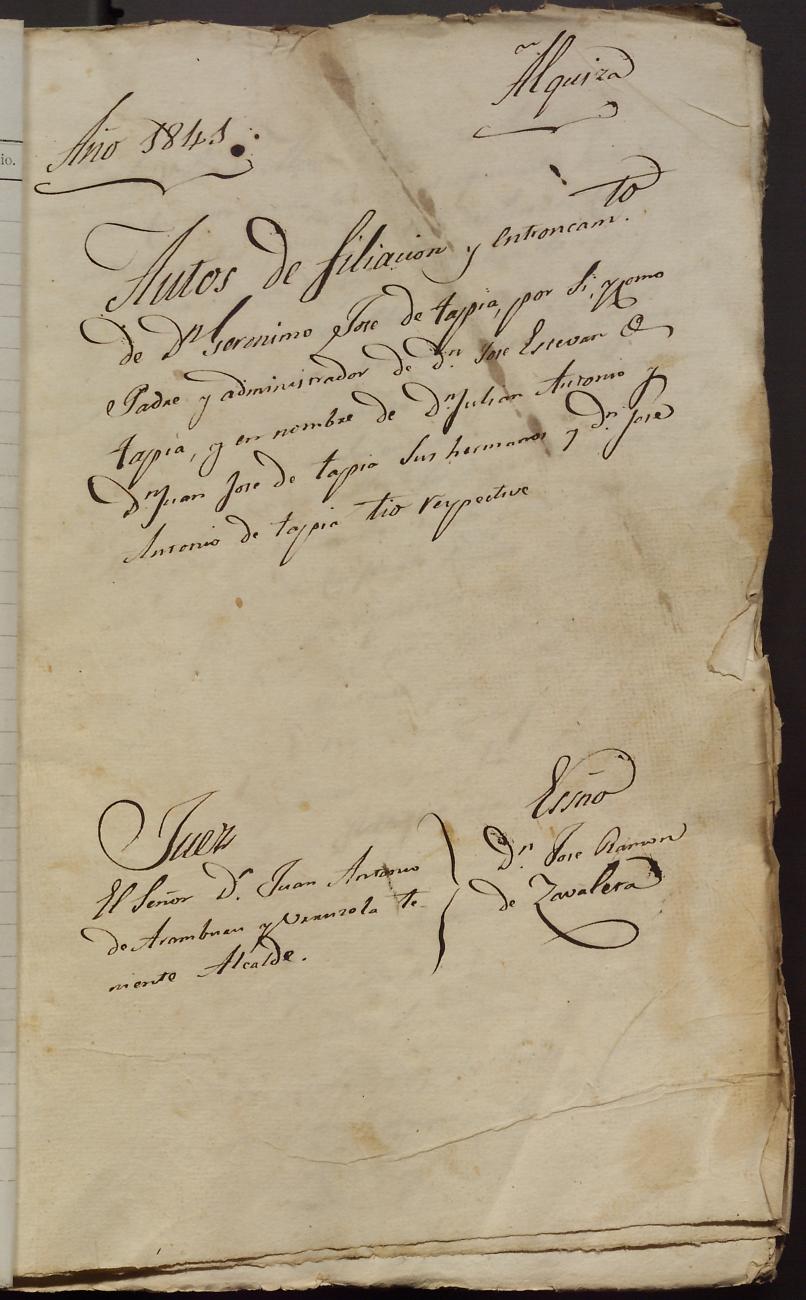 Alquiza
Año 1841.
Autos de filiacion y entroncam.to
de Dn Geronimo Jose de tapia, por si, y como
Padre y administrador de dn Jose Estevan de
tapia, y en nombre de Dn Julian Antonio y
Dn Juan Jose de tapia sus hermanos y Dn Jose
Antonio de tapia tio respective
Juez
El Señor Dn Juan Antonio
de Aramburu y te
niente Alcalde.
Essño
Dn Jose Ramon
de Zavaleta
io.